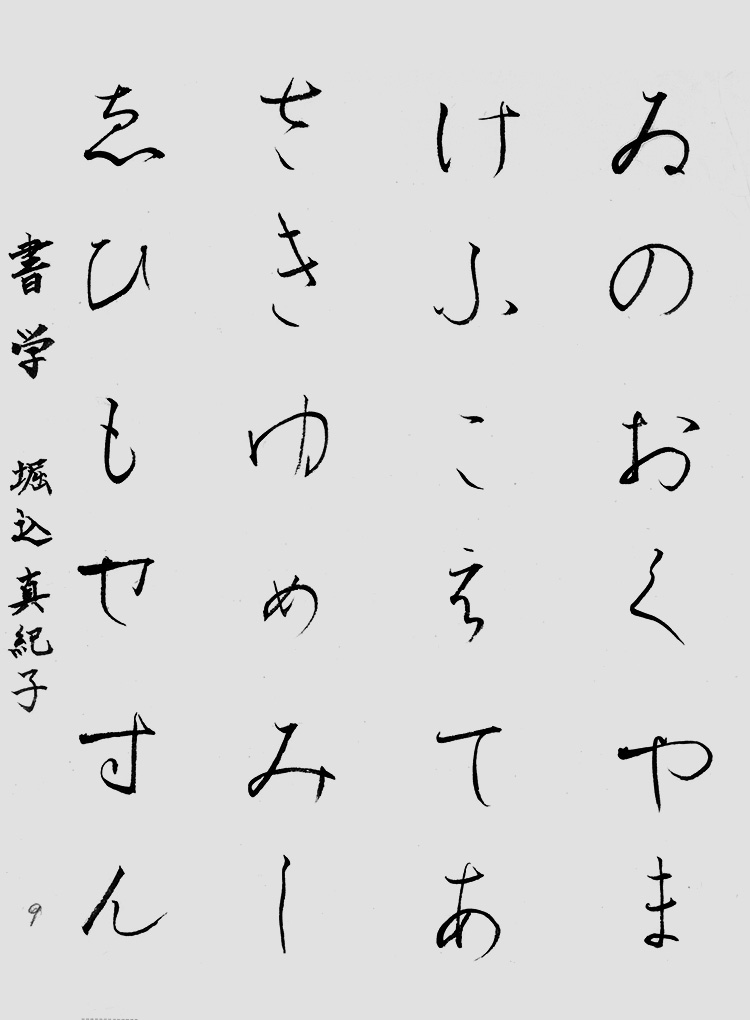 ゐのおくやま
けふこえてあ
さきゆめみし
ゑひもせすん
書学 堀込真紀子
9